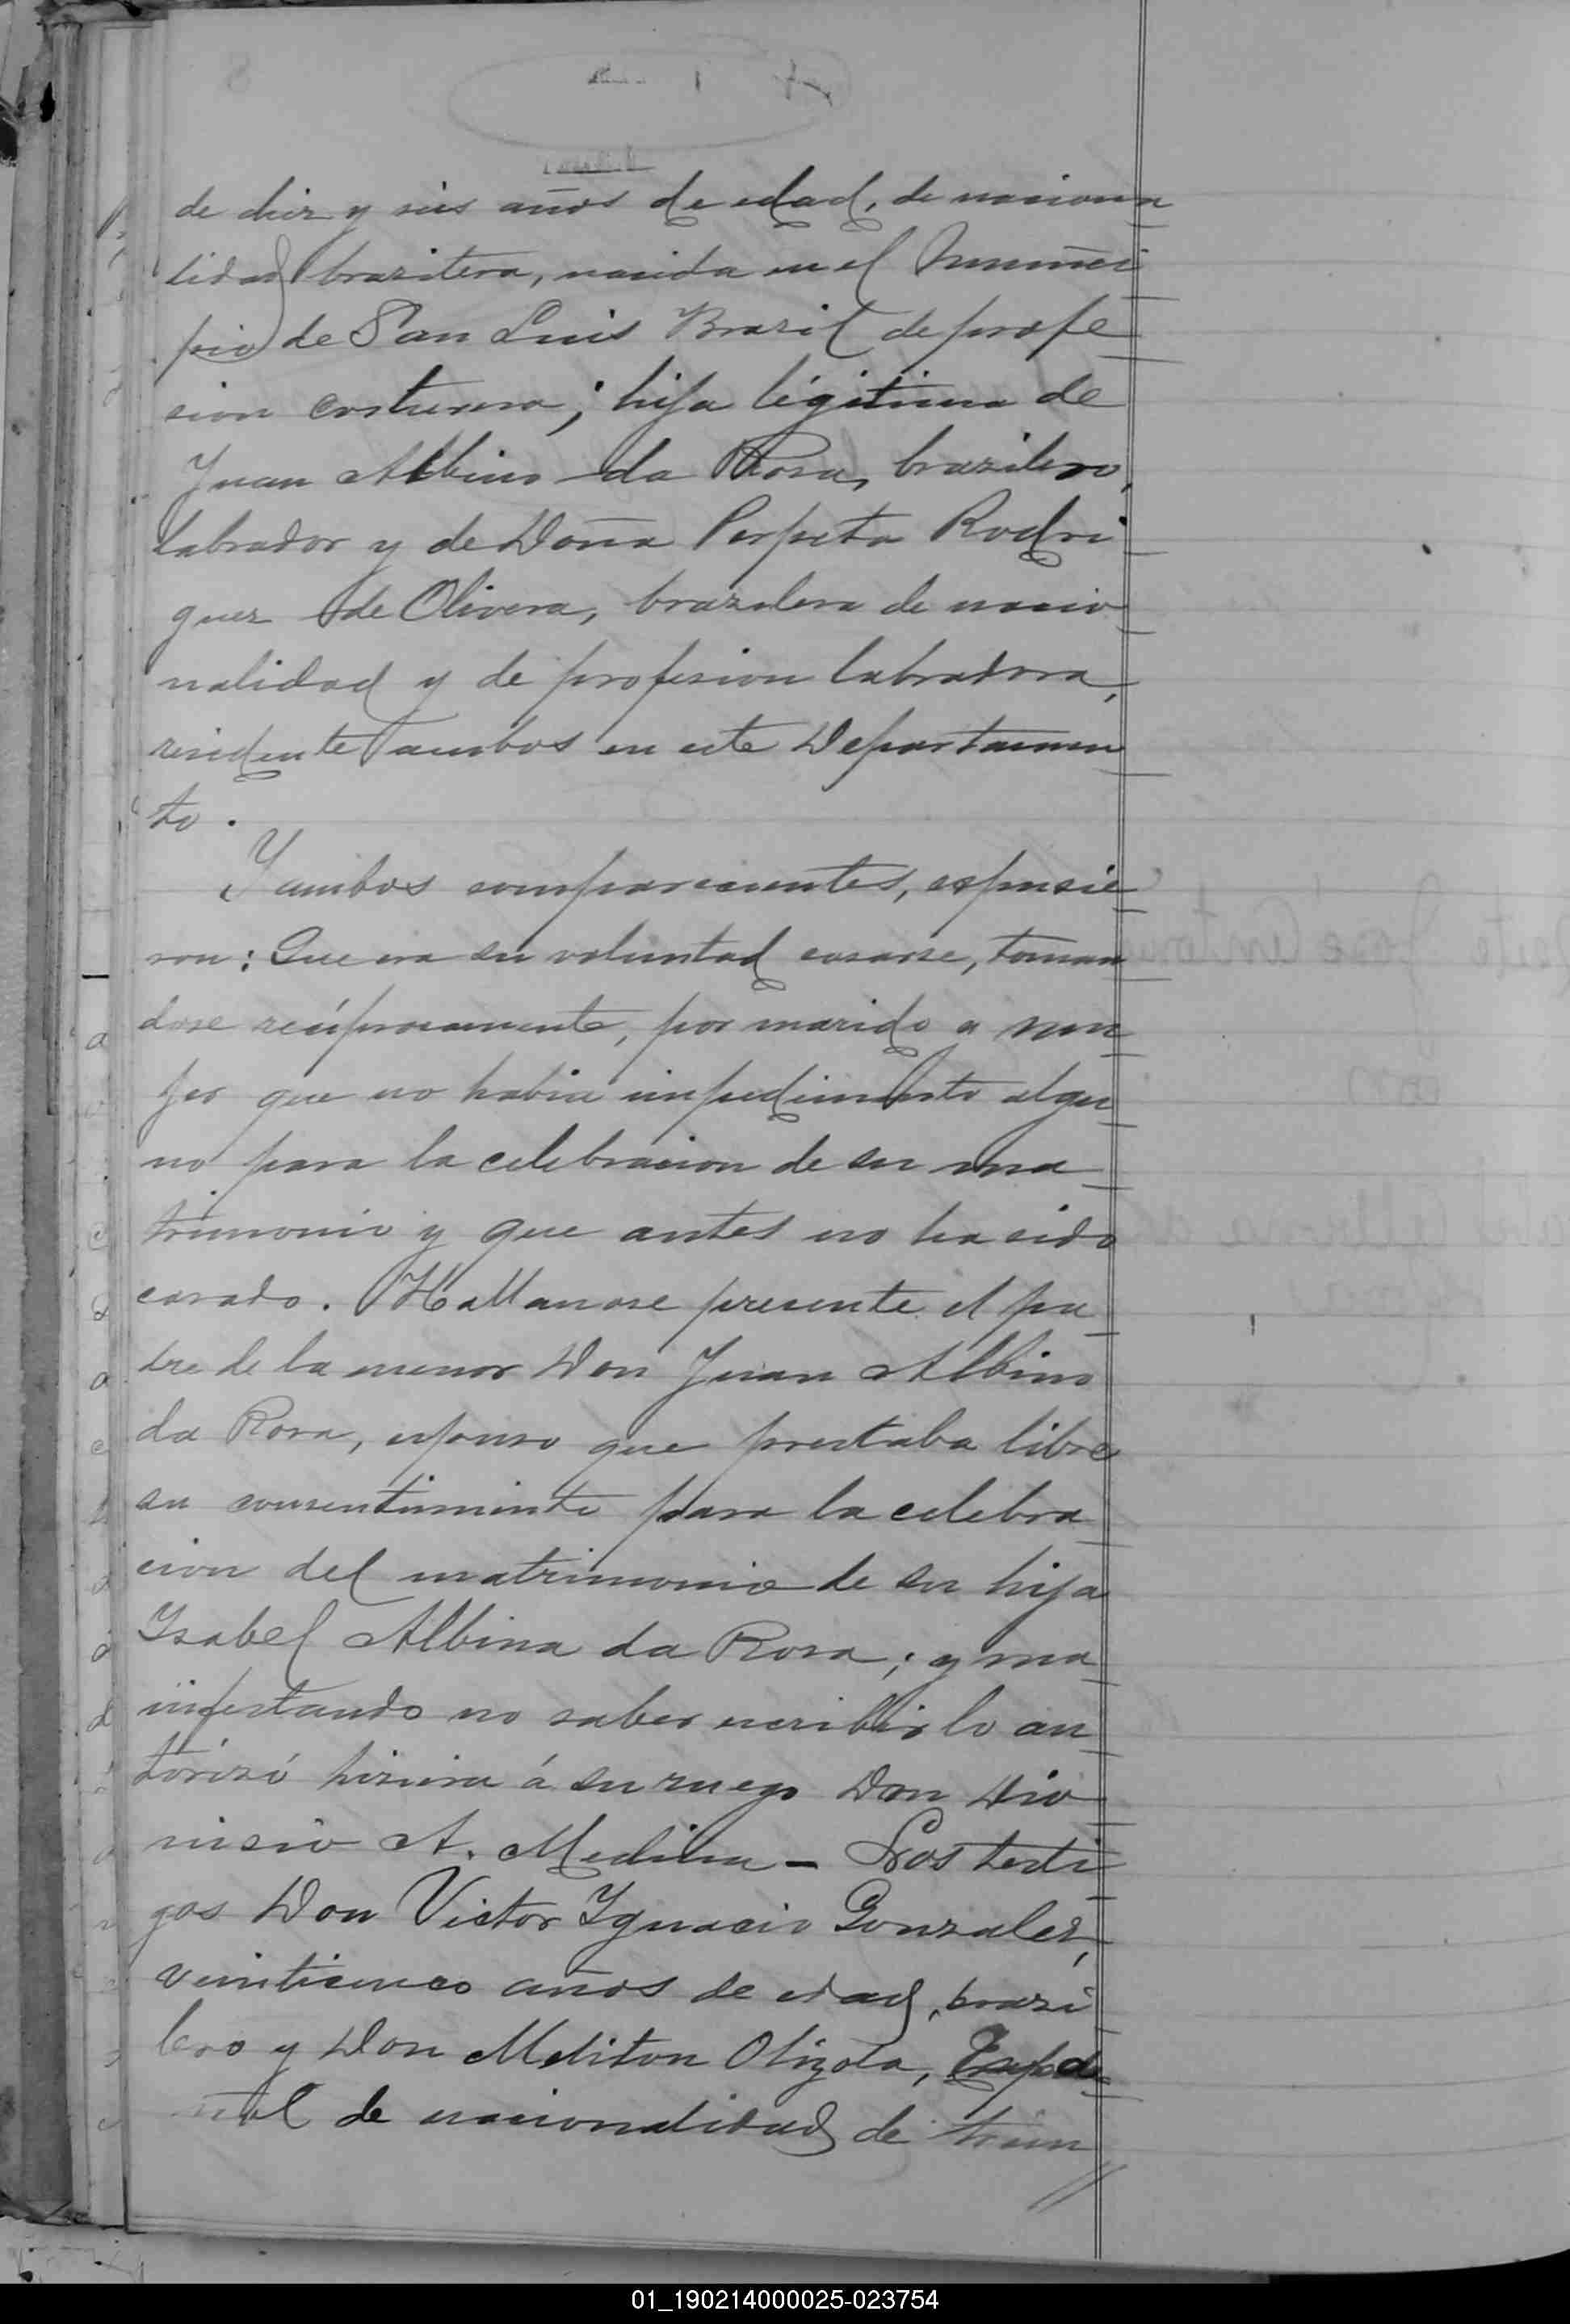 de diez y seis años de edad, de naciona
lidad brazilera, nacida en el Munici
pio de San Luis Brazil de profe
sion costurera; hija légitima de
Juan Albino da Rosa, brazilero,
labrador y de Doña Perpeta Rodri
guez de Olivera, brazilera de nacio
nalidad y de profesion labradora,
residente ambos en este Departamen
to.
Y ambos comparecientes, espusie
ron: Que era su voluntad casarse, toman
dose recíprocamente, por marido a mu
jer que no habia impedimento algu
no para la celebracion de su ma
trimonio y que antes no ha sido
casado. Hallanose presente el pa
dre de la menor Don Juan Albino
da Rosa, espuso que prestaba libre
su consentimiento para la celebra
cion del matrimonio de su hija
Isabel Albina da Rosa; y ma
nifestando no saber escribir lo au
torizó hiziera á su ruego Don Dio
nisio A. Medina - Los testi
gos Don Victor Ygnacio Gonzalez,
veinticinco años de edad, brazi
lero y Don Meliton Olizola,
ñol de nacionalidad de trein
01_190214000025-023754